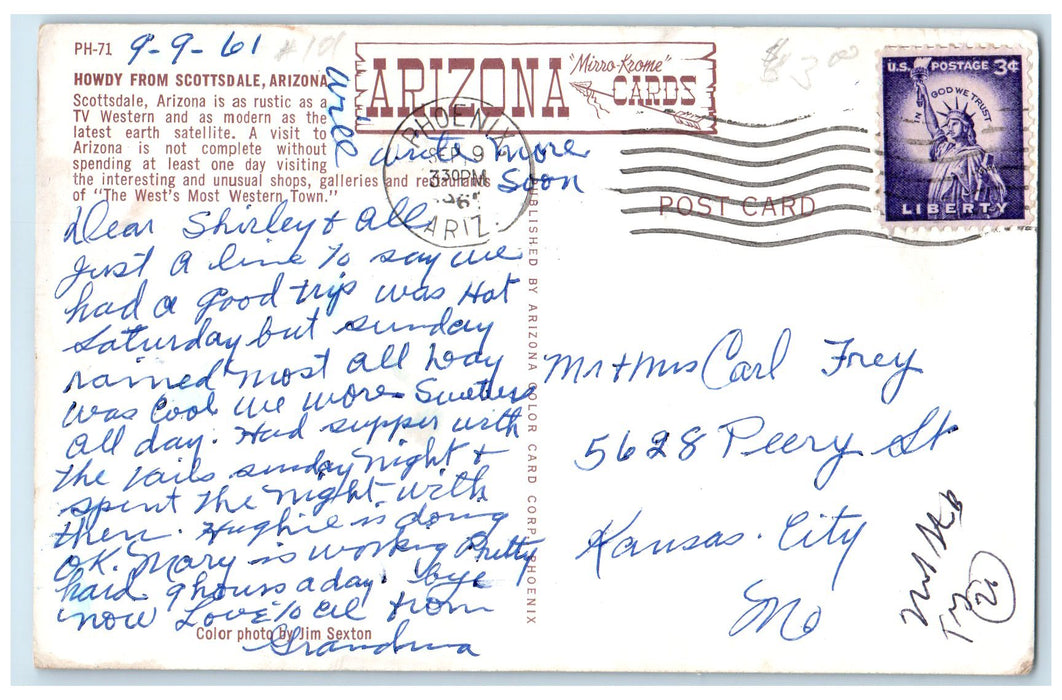 PH-71 9-9-61 #101
HOWDY FROM SCOTTSDALE, ARIZONA
Scottsdale, Arizona is as rustic as a
TV Western and as modern as the
latest earth satellite. A visit to
Arizona is not complete without
spending at least one day visiting
the interesting and unusual shops, galleries and restaurants
of "The West's Most Western Town."
will write more
soon
Dear Shirley & All
Just a line to say we
had a good trip was Hot
Saturday but sunday
rained most all day
was cool we wore Sweters
all day. Had supper with
the Vails sunday night &
spent the night with
them. Hughie is doing
O.K. Mary is working Pretty
hard 9 hours a day. bye
now Love to all from
Grandma
Color photo by Jim Sexton
ARIZONA "Mirro-Krome" CARDS
PHOENIX
SEP 9
330PM
1961
ARIZ.
PUBLISHED BY ARIZONA COLOR CARD CORP. PHOENIX
POST CARD
U.S. POSTAGE 3¢
IN GOD WE TRUST
LIBERTY
3 00
Mr + Mrs Carl Frey
5628 Peery St
Kansas. City
Mo
20